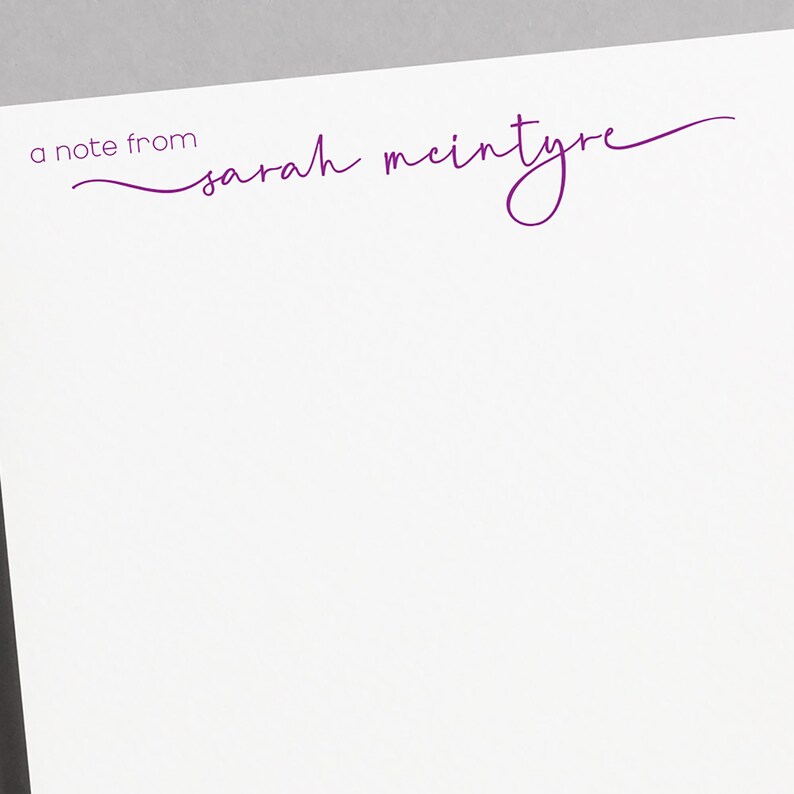 a note from
sarah mcintyre